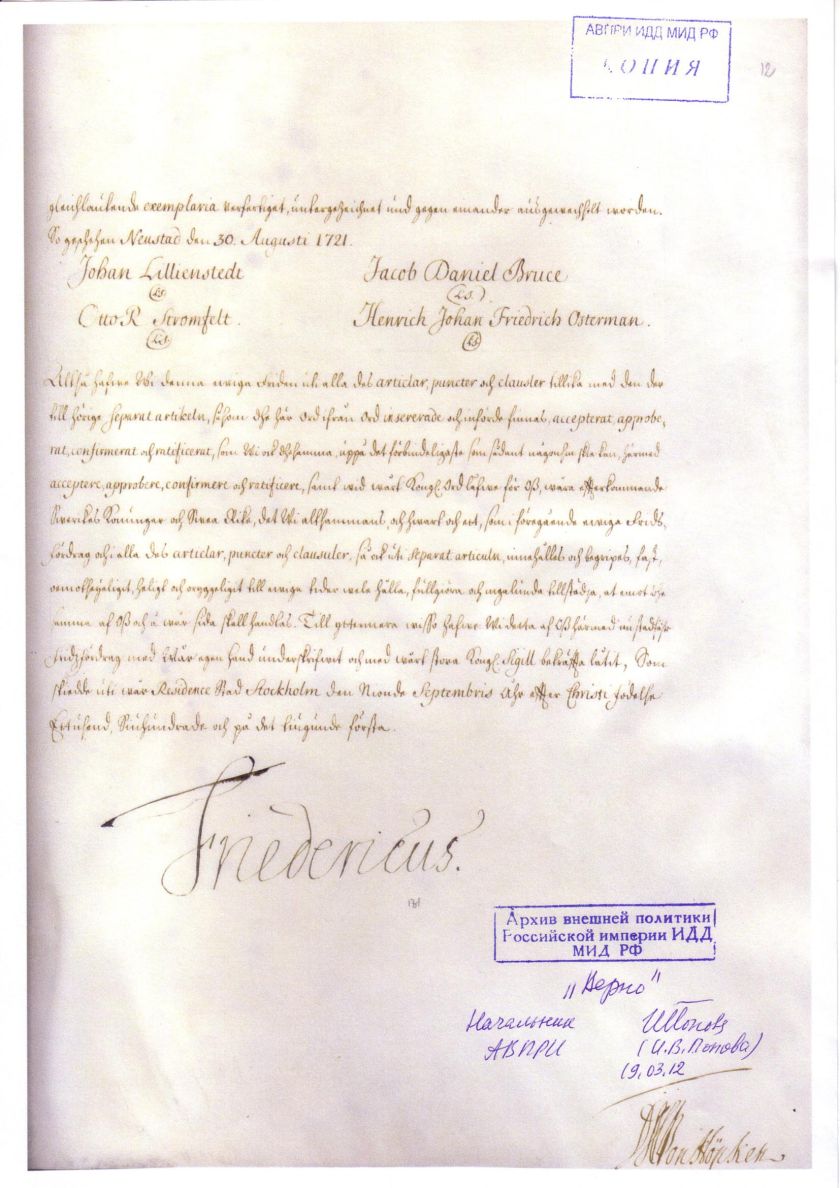 АВПРИ ИДД МИД РФ
КОПИЯ
12
gleichlautende exemplaria verfertiget, unterzeichnet und gegen einander ausgewechselt worden.
So geschehen Neustad den 30. Augusti 1721.
Johan Lillienstedt Jacob Daniel Bruce
(L.S.) (L.S.)
Otto R. Stromfelt. Henrich Johan Friedrich Osterman.
(L.S.) (L.S.)
Altså hafwe Wi denna ewiga Friden uti alla des articlar, puncter och clausler tillika med den der
till hörige Separat artikeln, såsom dhe här Ord ifrån Ord insererade och införde finnas, accepterat, approbe,
rat, confirmerat och ratificerat, som Wi ock dhesamma, uppå det förbindeligaste som sådant någonsin skie kan, härmed
acceptere, approbere, confirmere och ratificere, samt wid wårt Kongl. Ord lofwe för Oß, wåra efterkommande
Swerikes Konungar och Swea Rike, det Wi altsammans, och hwart och ett, som i föregående ewige Frids,
fördrag och i alla des articlar, puncter och clausuler, så ock uti Separat articuln, innehålles och begripes, fast,
oemotsäyeligit, heligt och oryggeligit till ewige tider wele hålla, fullgiöra och ingalunda tillstädia, at emot dhe
samma af Oß och å wår sida skall handlas. Till yttermera wisso hafwe Wi detta af Oß härmed
Fridzfördrag med Wår egen hand underskrifwit och med wårt stora Kongl. Sigill bekräffta låtit, Som
skiedde uti wår Residence Stad Stockholm den Nionde Septembris Åhr effter Christi födelse
Ettusend, Siuhundrade och på det tiugunde första.
Friedericus.
Архив внешней политики
Российской империи ИДД
МИД РФ
"Верно"
Начальник
АВПРИ (И.В.Попова)
19.03.12
von Höpken